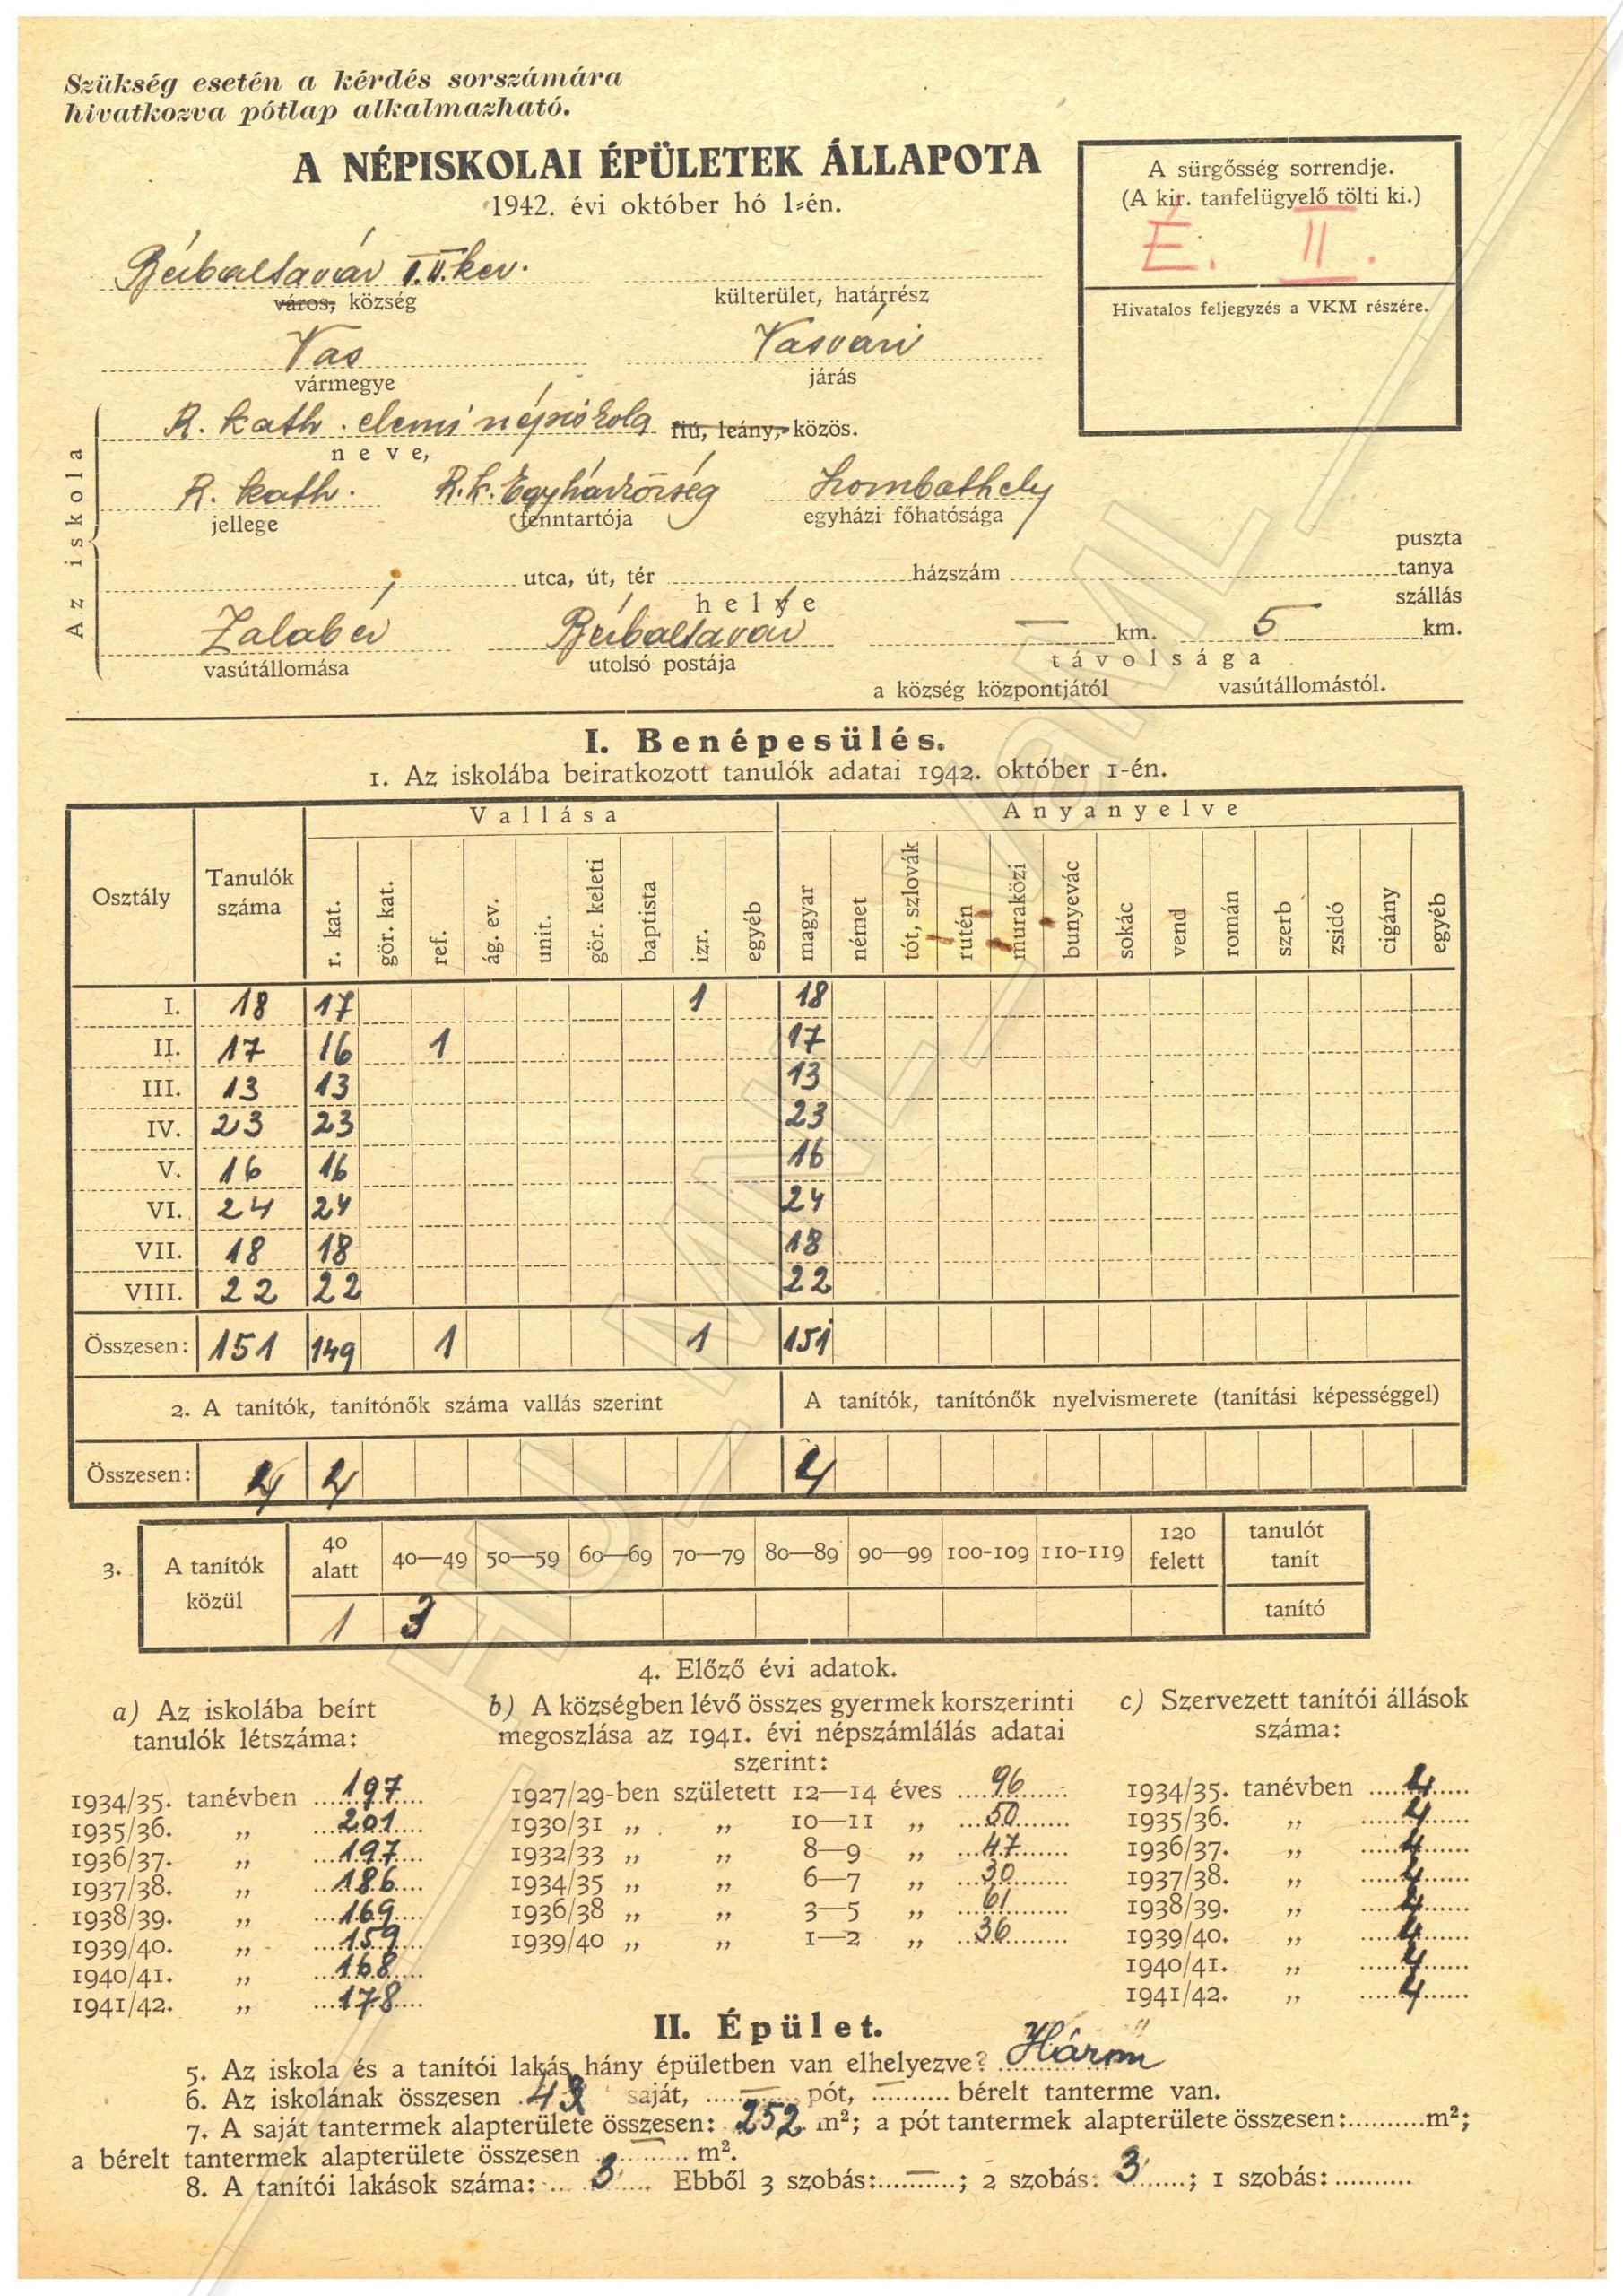 Szükség esetén a kérdés sorszámára
hivatkozva pótlap alkalmazható.
A NÉPISKOLAI ÉPÜLETEK ÁLLAPOTA
1942. évi október hó 1-én.
A sürgősség sorrendje.
(A kir. tanfelügyelő tölti ki.)
É. II.
Hivatalos feljegyzés a VKM részére.
Bérbaltavár I.II.ker.
város, község
külterület, határrész
Vas Vasvári
vármegye járás
Az iskola
R. kath. elemi népiskola fiú, leány, közös.
neve,
R. kath. R.k. Egyházközség Szombathely
jellege fenntartója egyházi főhatósága
utca, út, tér házszám puszta tanya szállás
helye
Zalabér Bérbaltavár — km. 5 km.
vasútállomása utolsó postája távolsága
a község központjától vasútállomástól.
I. Benépesülés.
1. Az iskolába beiratkozott tanulók adatai 1942. október 1-én.
Osztály Tanulók száma Vallása Anyanyelve
r. kat. gör. kat. ref. ág. ev. unit. gör. keleti baptista izr. egyéb magyar német tót, szlovák rutén muraközi bunyevác sokác vend román szerb zsidó cigány egyéb
I. 18 17 1 18
II. 17 16 1 17
III. 13 13 13
IV. 23 23 23
V. 16 16 16
VI. 24 24 24
VII. 18 18 18
VIII. 22 22 22
Összesen: 151 149 1 1 151
2. A tanítók, tanítónők száma vallás szerint A tanítók, tanítónők nyelvismerete (tanítási képességgel)
Összesen: 4 4 4
3. A tanítók közül 40 alatt 40—49 50—59 60—69 70—79 80—89 90—99 100-109 110-119 120 felett tanulót tanít
1 3 tanító
4. Előző évi adatok.
a) Az iskolába beírt
tanulók létszáma:
b) A községben lévő összes gyermek korszerinti
megoszlása az 1941. évi népszámlálás adatai
szerint:
c) Szervezett tanítói állások
száma:
1934/35. tanévben 197 1927/29-ben született 12—14 éves 96 1934/35. tanévben 4
1935/36. „ 201 1930/31 „ „ 10—11 „ 50 1935/36. „ 4
1936/37. „ 197 1932/33 „ „ 8—9 „ 47 1936/37. „ 4
1937/38. „ 186 1934/35 „ „ 6—7 „ 30 1937/38. „ 4
1938/39. „ 169 1936/38 „ „ 3—5 „ 61 1938/39. „ 4
1939/40. „ 159 1939/40 „ „ 1—2 „ 36 1939/40. „ 4
1940/41. „ 168 1940/41. „ 4
1941/42. „ 178 1941/42. „ 4
II. Épület.
5. Az iskola és a tanítói lakás hány épületben van elhelyezve? Három
6. Az iskolának összesen 4 saját, — pót, — bérelt tanterme van.
7. A saját tantermek alapterülete összesen: 252 m²; a pót tantermek alapterülete összesen: m²;
a bérelt tantermek alapterülete összesen — m².
8. A tanítói lakások száma: 3 Ebből 3 szobás: —; 2 szobás: 3; 1 szobás: